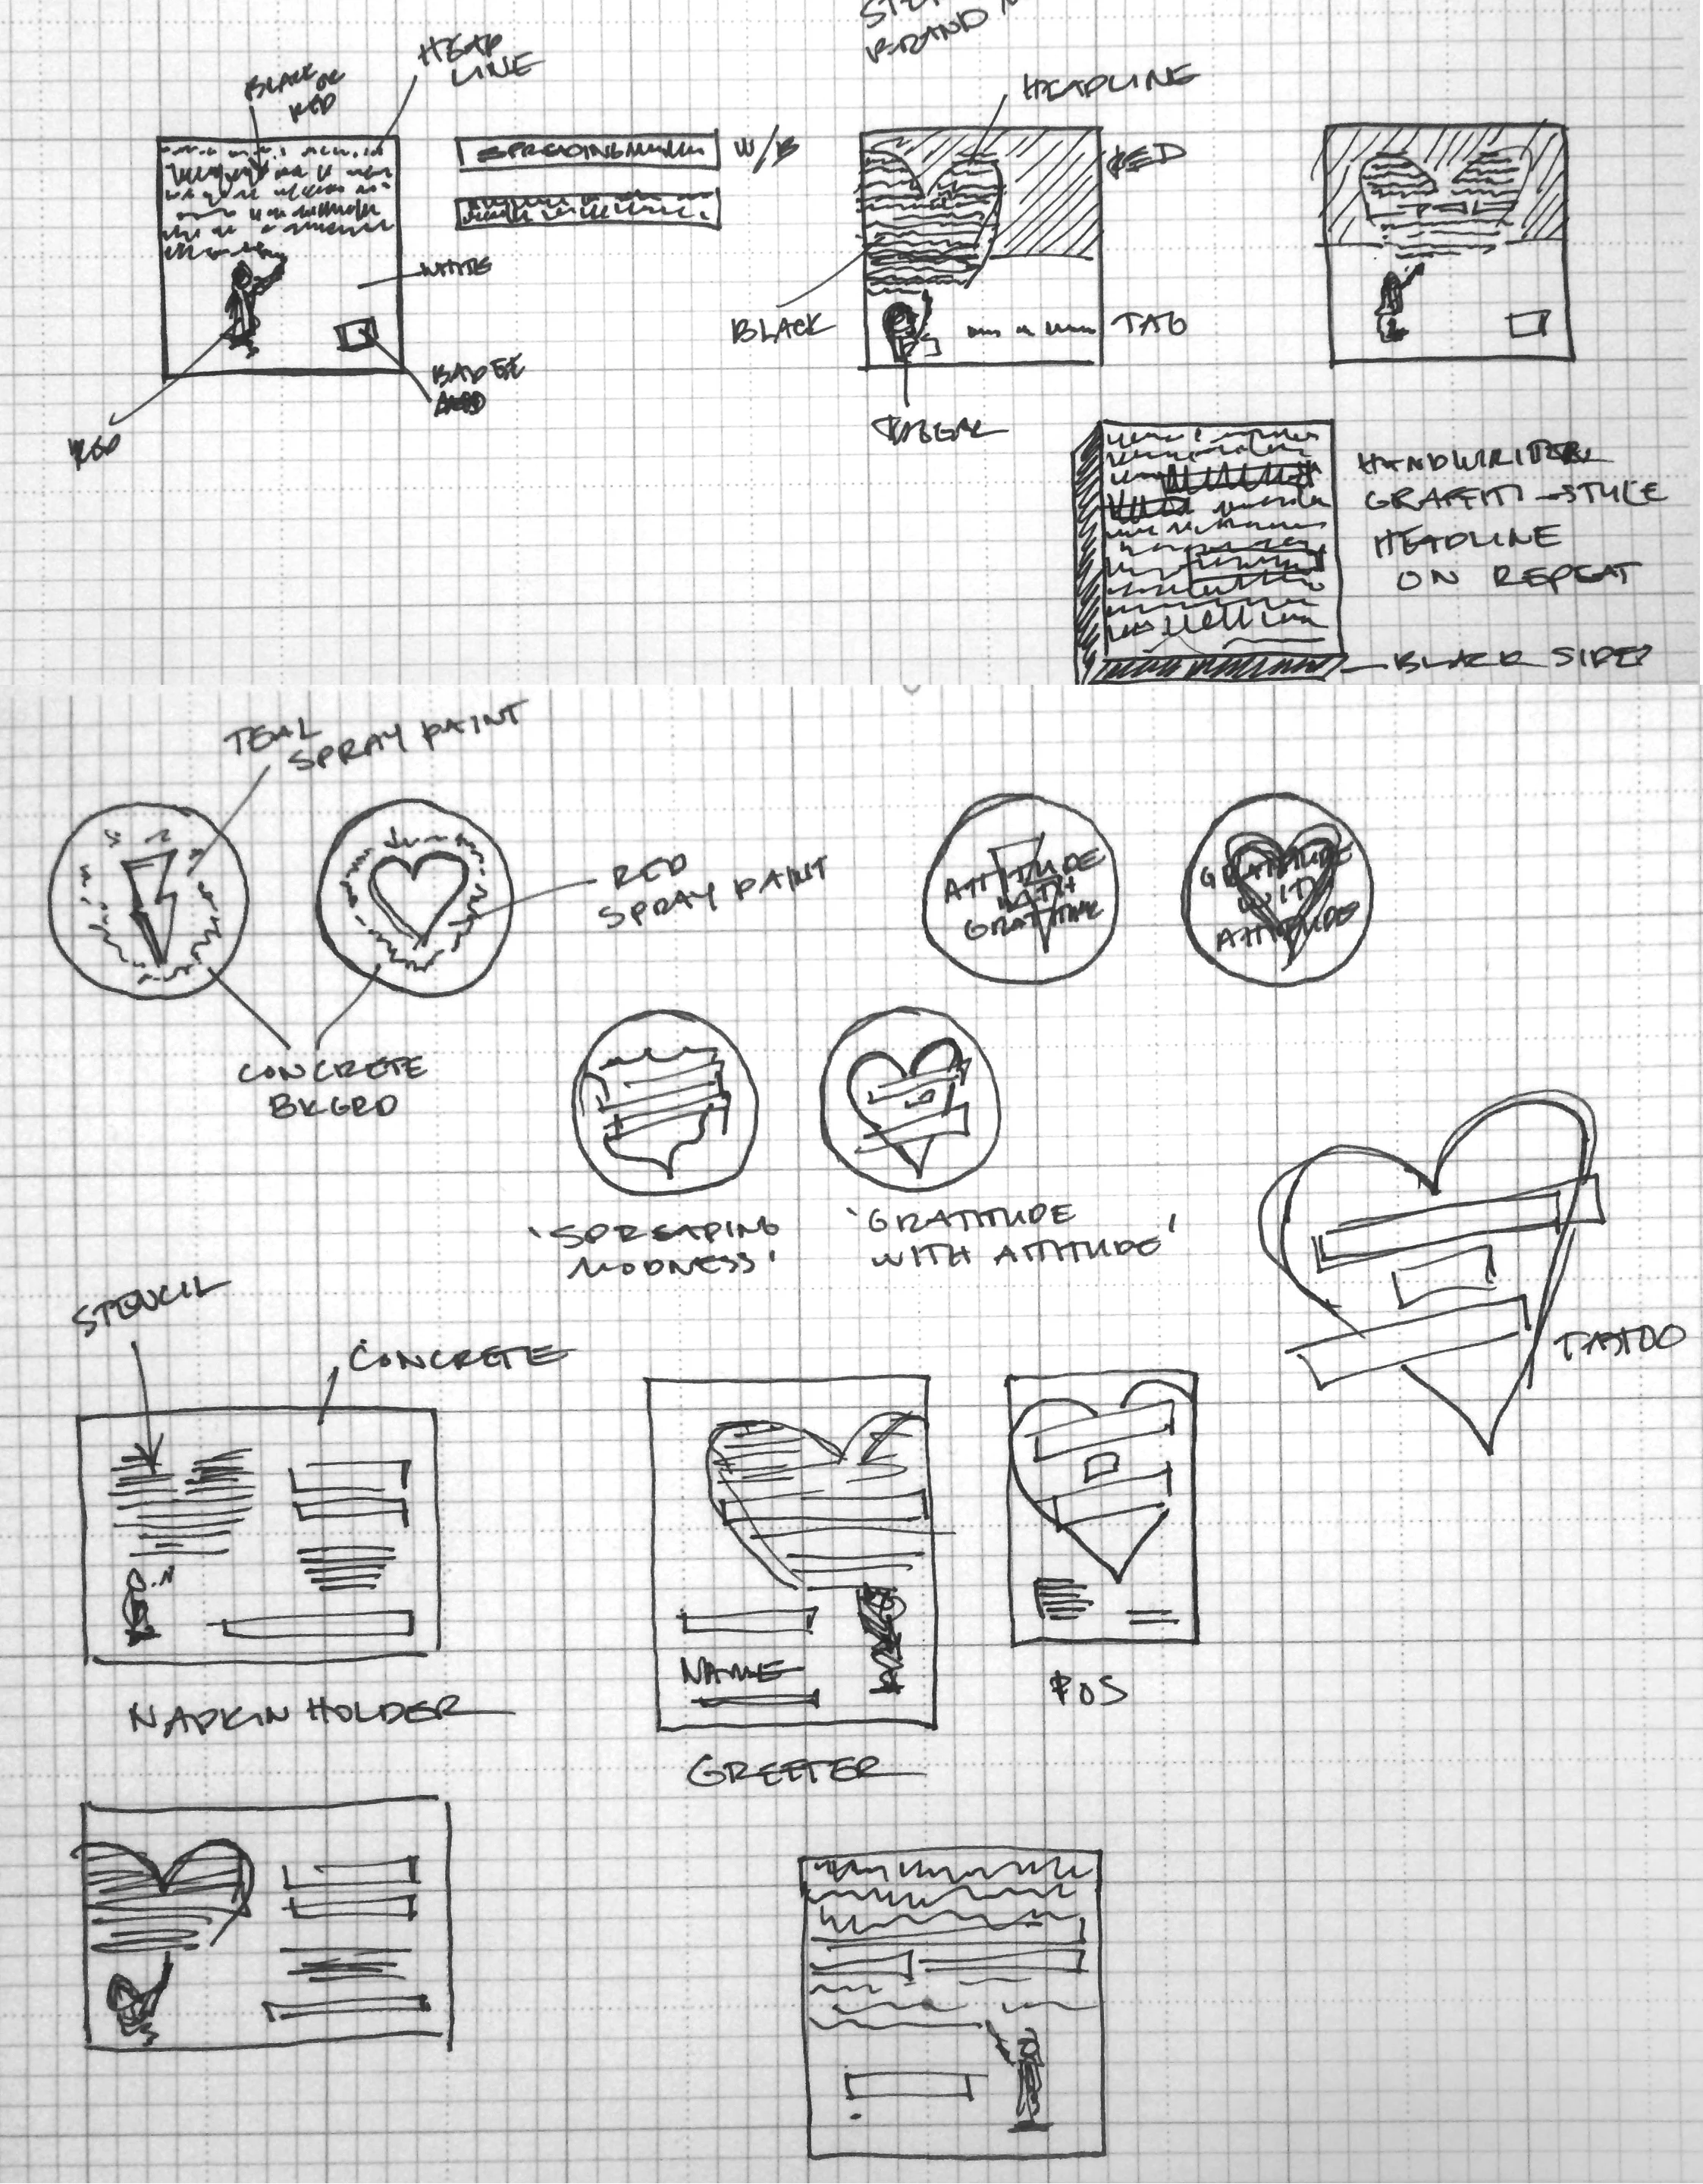 BRAND
HEAD
LINE
BLACK OR
RED
HEADLINE
SPREADING
W/B
RED
WHITE
BLACK
TAG
BADGE
RED
HANDWRITTEN
GRAFFITI-STYLE
HEADLINE
ON REPEAT
BLACK SIDES
TEAL
SPRAY PAINT
RED
SPRAY PAINT
ATTITUDE
WITH
GRATITUDE
GRATITUDE
WITH
ATTITUDE
CONCRETE
BKGRD
'SPREADING
MODNESS'
'GRATITUDE
WITH ATTITUDE'
STENCIL
CONCRETE
TATTOO
NAME
NAPKIN HOLDER
POS
GREETER